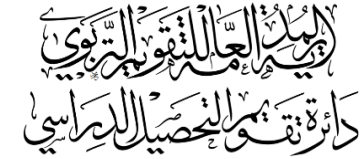 المديرية العامة للتقويم التربوي
دائرة تقويم التحصيل الدراسي